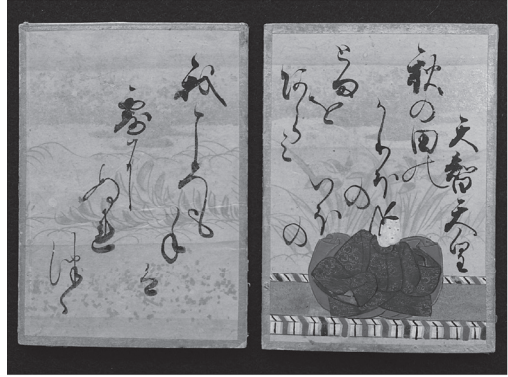 天智天皇
秋の田の
かりほ
の
いほ
の
とま
を
あらみ
我ころも
ては
露に
ぬれ
つゝ